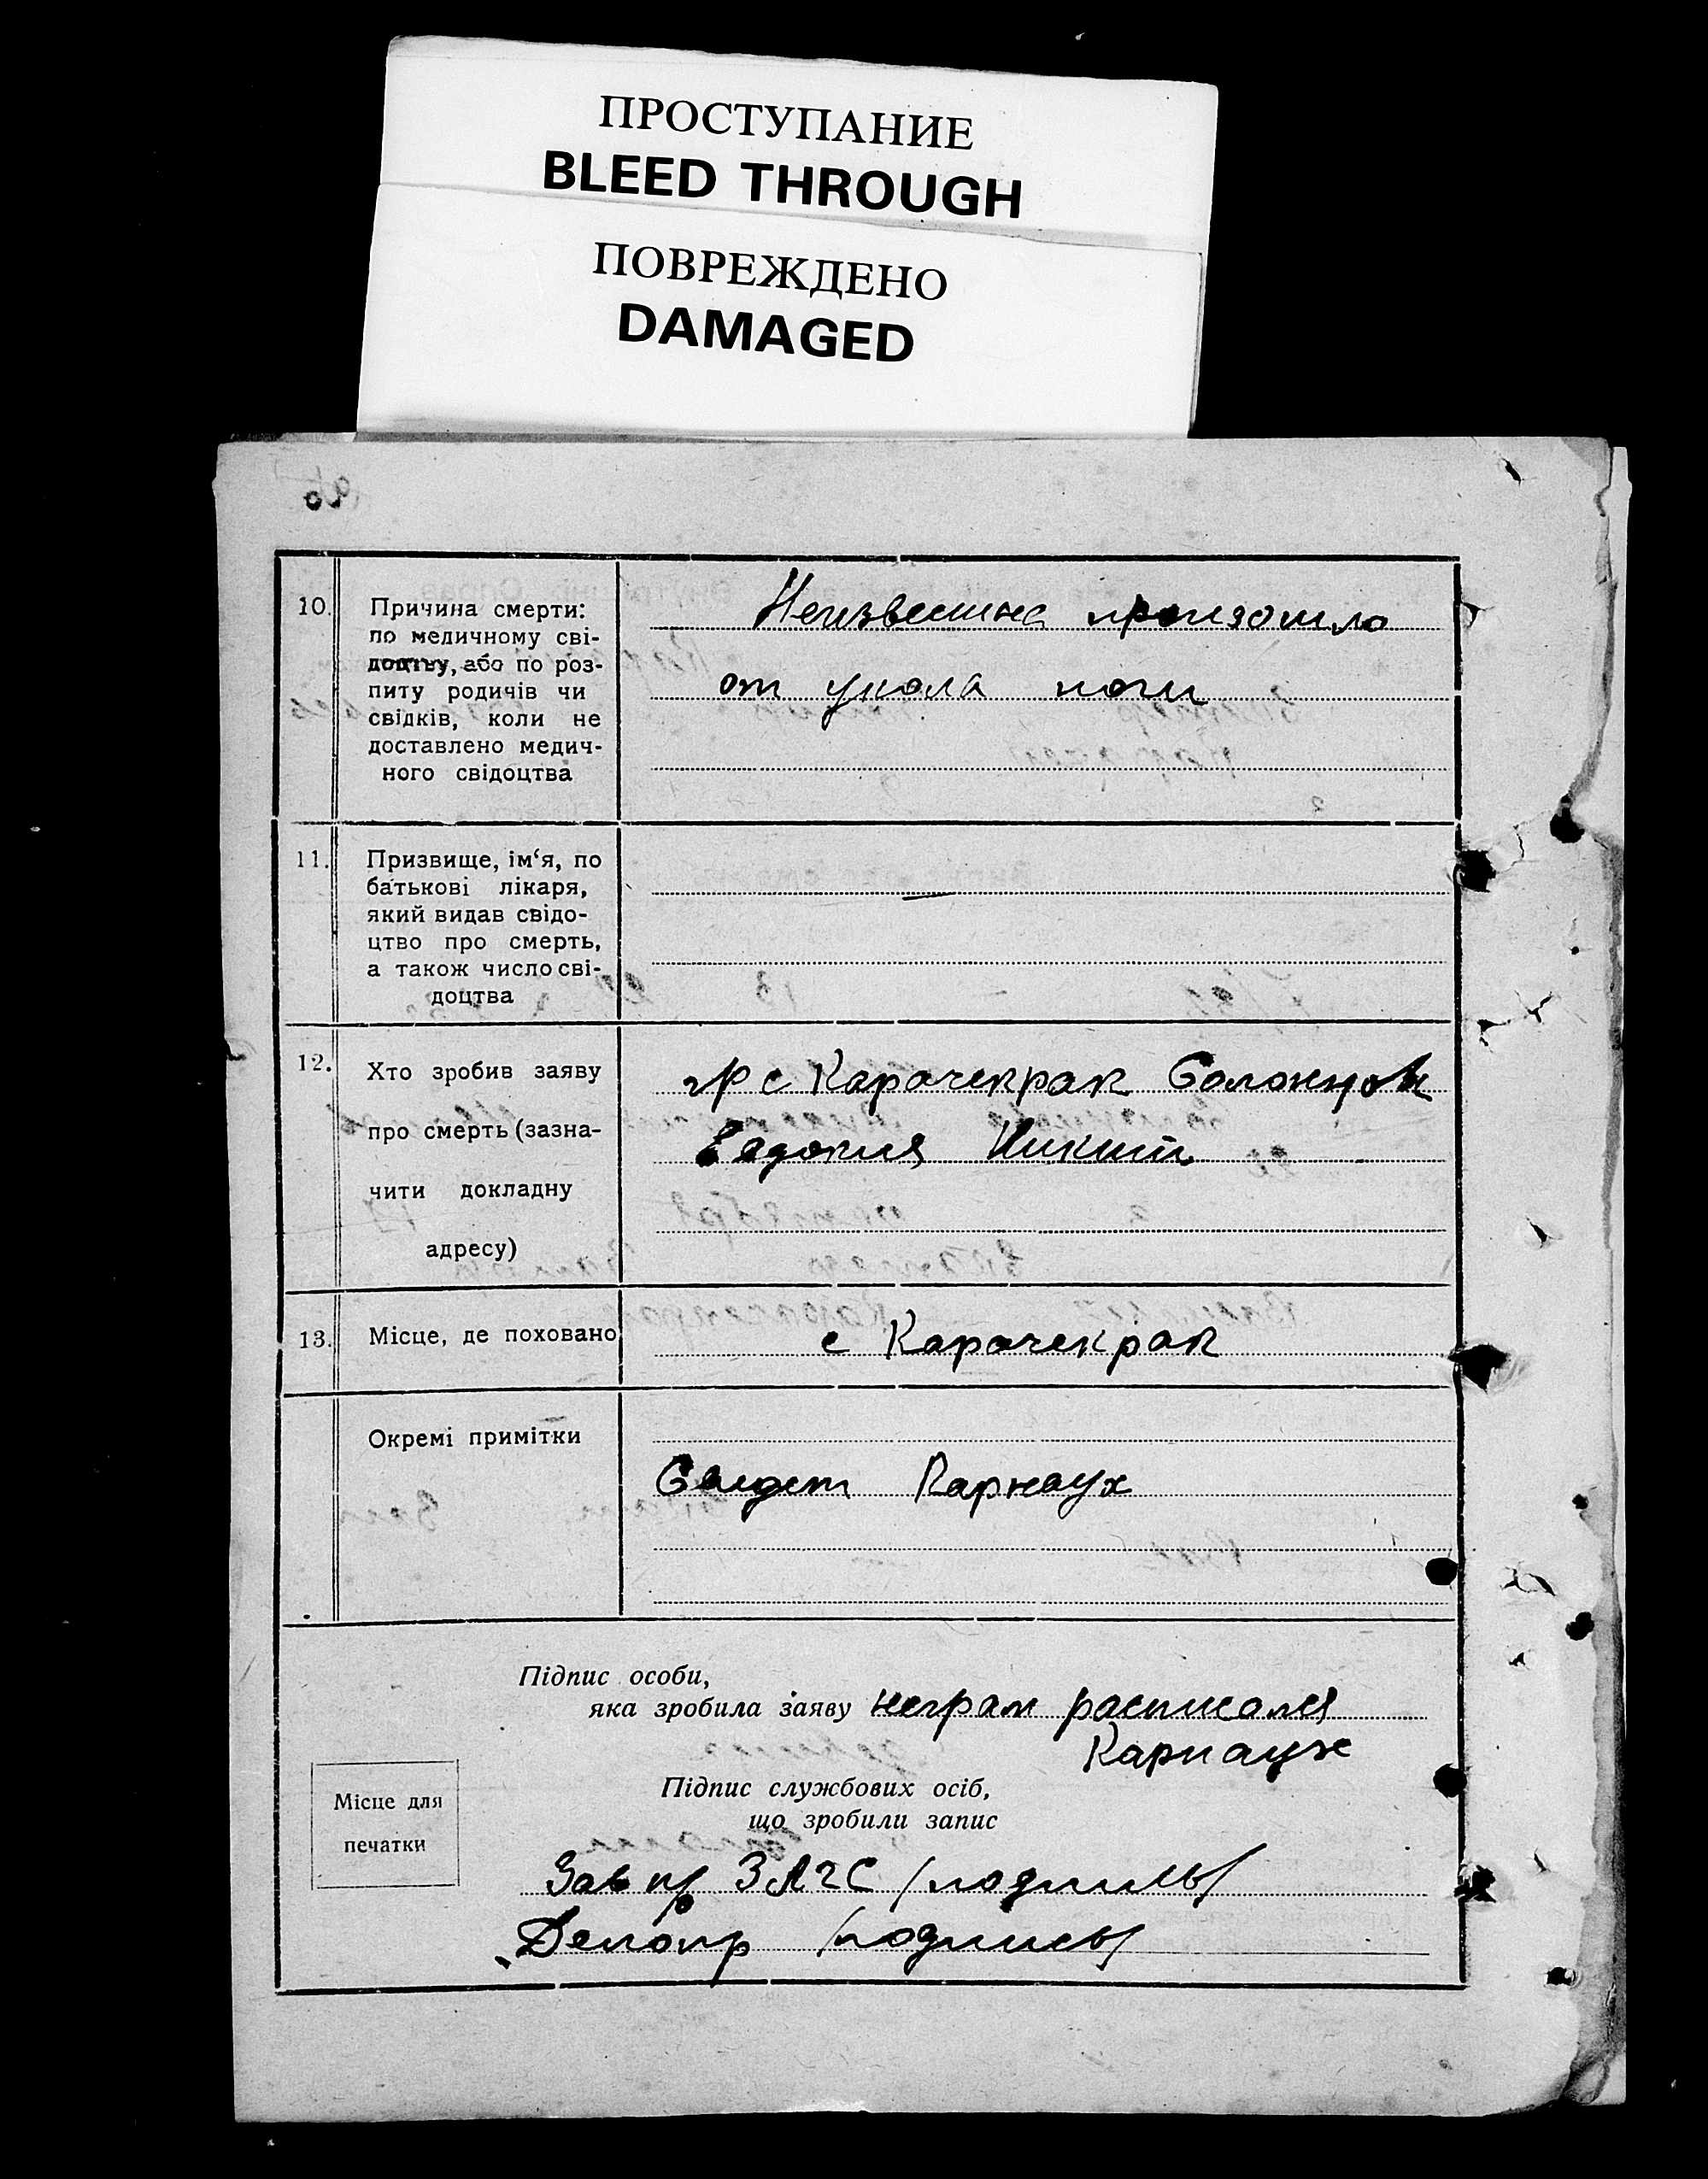 ПРОСТУПАНИЕ
BLEED THROUGH
ПОВРЕЖДЕНО
DAMAGED
10. Причина смерти:
по медичному сві-
доцтву, або по роз-
питу родичів чи
свідків, коли не
доставлено медич-
ного свідоцтва
Неизвестна произошло
от укола ноги
11. Призвище, ім‘я, по
батькові лікаря,
який видав свідо-
цтво про смерть,
а також число сві-
доцтва
—
12. Хто зробив заяву
про смерть (зазна-
чити докладну
адресу)
гр с Карачекрак
Евдокия Никит
13. Місце, де поховано
с Карачекрак
Окремі примітки
Карнаух
Підпис особи,
яка зробила заяву неграм расписался
Карнаух
Підпис службових осіб,
що зробили запис
Місце для
печатки
Зав пр ЗАГС /подпись/
Делопр /подпись/